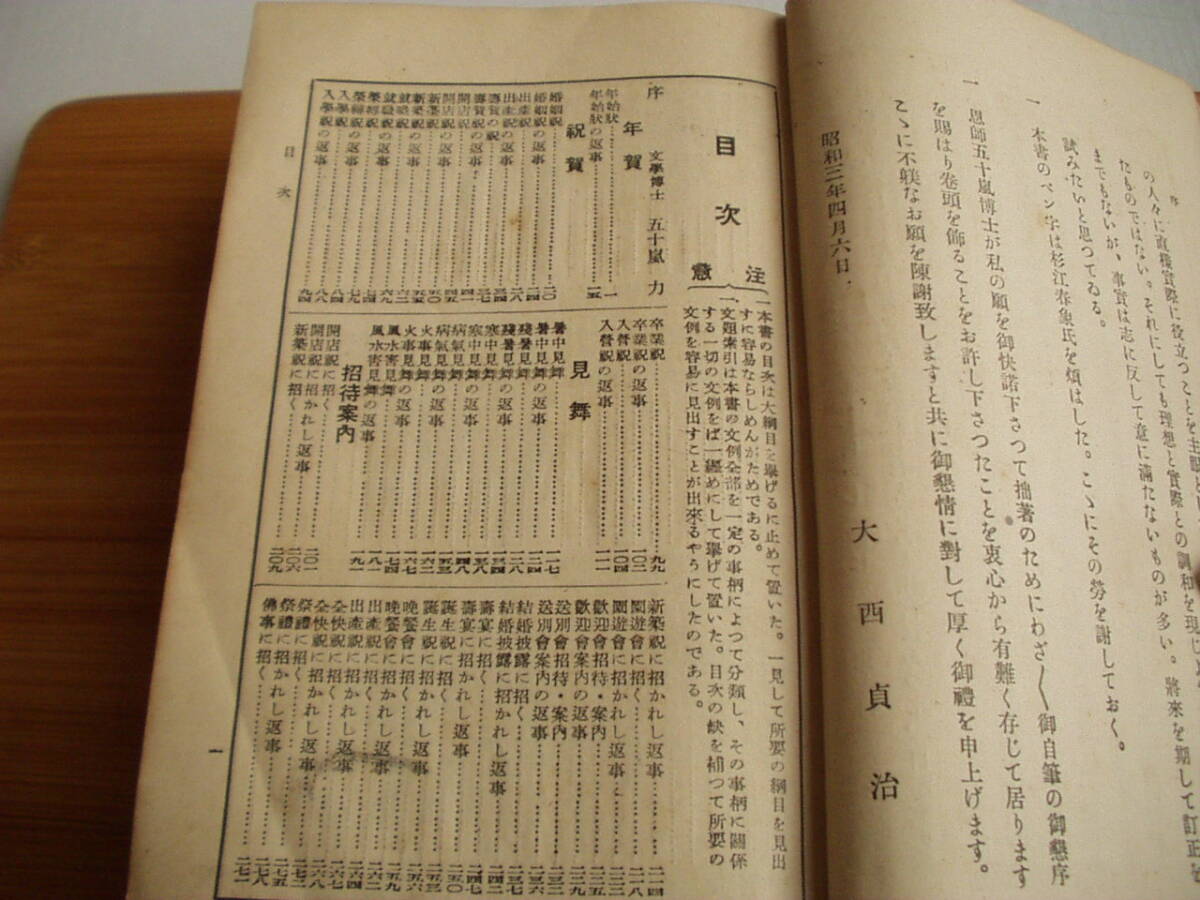 序
の人々に直接實際に役立つことを主眼と
たものではない。それにしても理想と實際との調和を現し
までもないが、事實は志に反して意に滿たないものが多い。將來を期して訂正を
試みたいと思つてゐる。
一 本書のペン字は杉江春象氏を煩はした。こゝにその勞を謝しておく。
一 恩師五十嵐博士が私の願を御快諾下さつて拙著のためにわざ〱御自筆の御懇序
を賜はり卷頭を飾ることをお許し下さつたことを衷心から有難く存じて居ります
こゝに不躾なお願を陳謝致しますと共に御懇情に對して厚く御禮を申上げます。
昭和三年四月六日
大西貞治
目次
注意
一、本書の目次は大綱目を擧げるに止めて置いた。一見して所要の綱目を見出
すに容易ならしめんがためである。
一、文題索引は本書の文例全部を一定の事柄によつて分類し、その事柄に關係
する一切の文例をば一纒めにして擧げて置いた。目次の缺を補つて所要の
文例を容易に見出すことが出來るやうにしたのである。
序 文學博士 五十嵐力
年賀
年始狀……一
年始狀の返事……一五
祝賀
婚姻祝……二〇
婚姻祝の返事……二四
出產祝……二八
出產祝の返事……三四
壽賀の祝……三七
壽賀祝の返事……四一
開店祝……四四
開店祝の返事……
新築祝……五〇
新築祝の返事……五五
就職祝……六二
就職祝の返事……六九
榮轉祝……七四
榮轉祝の返事……七九
入學祝……八四
入學祝の返事……
卒業祝……九九
卒業祝の返事……一〇二
入營祝……一〇四
入營祝の返事……一一一
見舞
暑中見舞……一一七
暑中見舞の返事……一二四
殘暑見舞……一二八
殘暑見舞の返事……
寒中見舞……一三四
寒中見舞の返事……
病氣見舞……一四八
病氣見舞の返事……
火事見舞……一六三
火事見舞の返事……一六七
風水害見舞……一八一
風水害見舞の返事……一九一
招待案内
開店祝に招く……二〇一
開店祝に招かれし返事……二〇六
新築祝に招く……二〇九
新築祝に招かれし返事……二一四
園遊會に招く……二一八
園遊會に招かれし返事……二二三
歡迎會招待・案内……二二五
歡迎會案内の返事……二二九
送別會招待・案内……二三二
送別會案内の返事……二三六
結婚披露に招く……二三七
結婚披露に招かれし返事……二四二
壽宴に招く……二四七
壽宴に招かれし返事……二五〇
誕生祝に招く……二五三
誕生祝に招かれし返事……二五六
晩餐會に招く……二五九
晩餐會に招かれし返事……二六二
出產祝に招く……二六四
出產祝に招かれし返事……二六六
全快祝に招く……二六八
全快祝に招かれし返事……二七二
祭禮に招く……二七五
祭禮に招かれし返事……二七八
佛事に招く……
目次
一